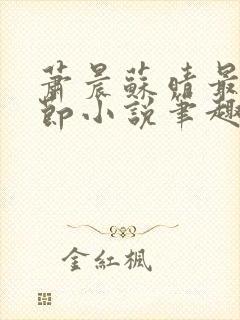 蕭晨蘇晴最
節小說筆趣
金紅楓